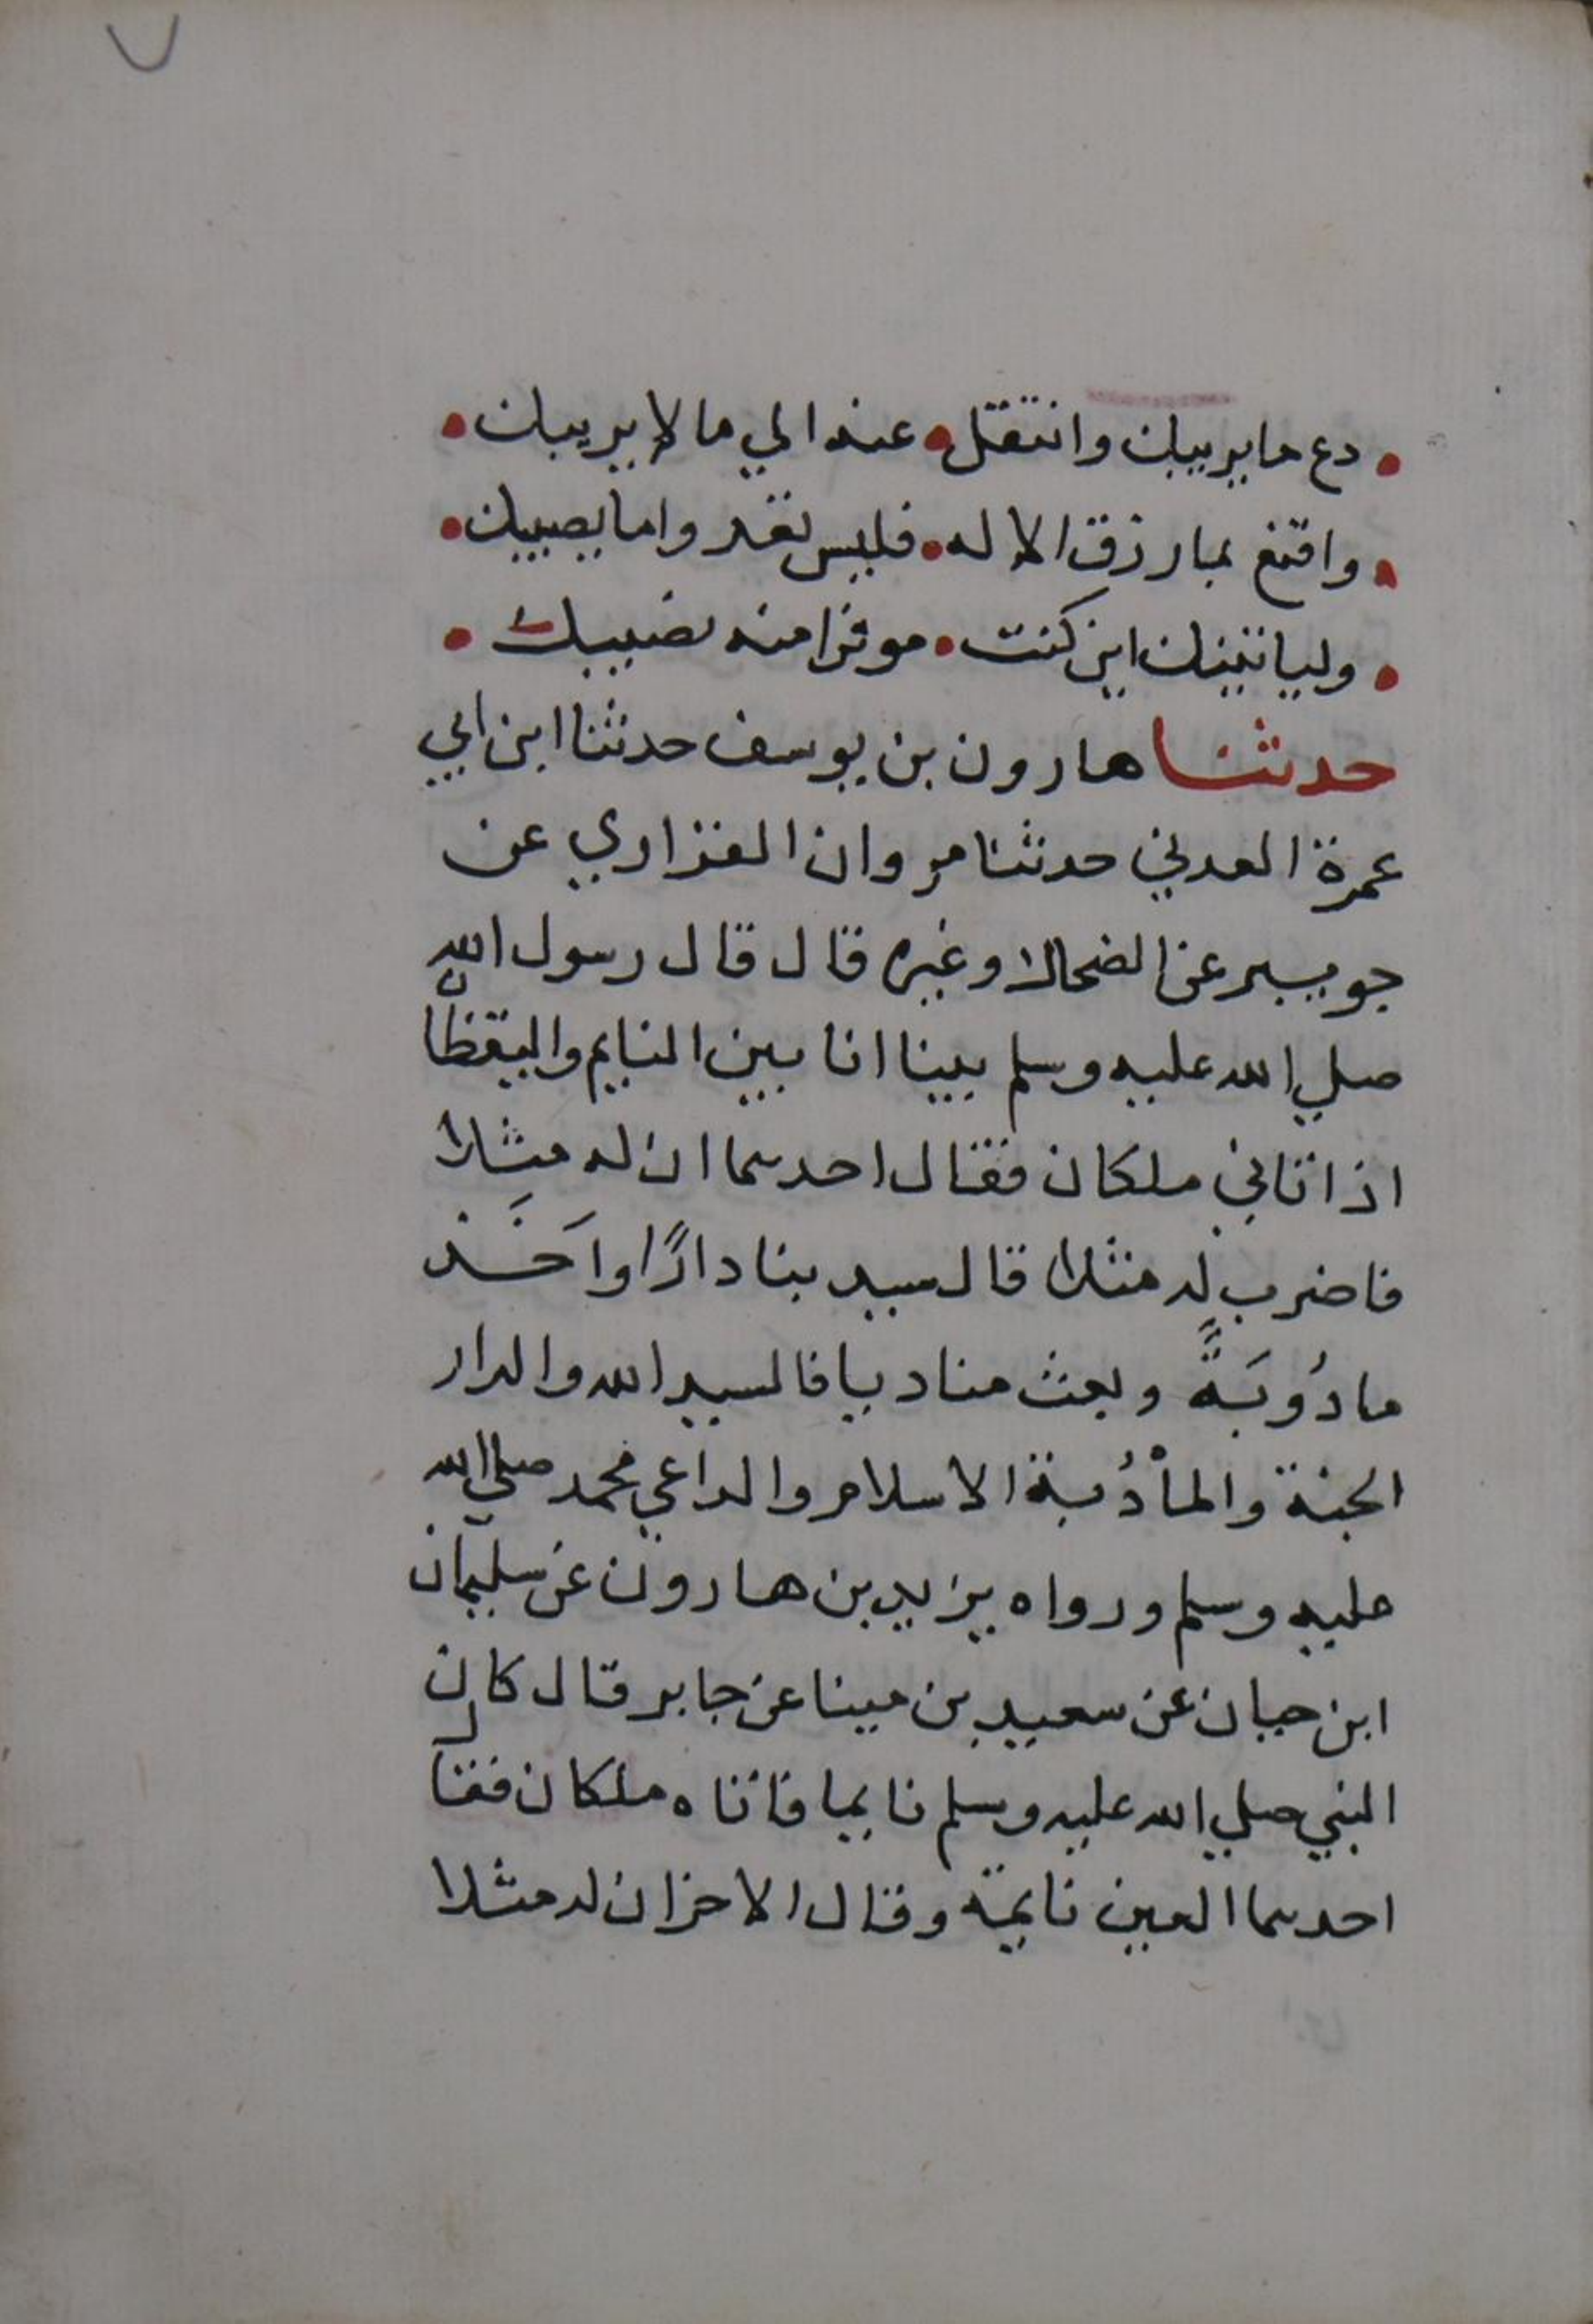 ٧
• دع ما يريبك وانتقل • عنه الي ما لا يريبك •
• واقنع بما رزق الاله • فليس تغدو اما يصيبك •
• ولياتينك اين كنت • موفرا منه نصيبك •
حدثنا هارون بن يوسف حدثنا ابن ابي
عمرة العدني حدثنا مروان الفزاري عن
جويبر عن الضحاك وغيره قال قال رسول الله
صلي الله عليه وسلم بينا انا بين النايم واليقظان
اذ اتاني ملكان فقال احدهما ان له مثلا
فاضرب له مثلا قال سيد بنا دارًا واَخَذ
مادُوبَةً وبعث مناديا فالسيد الله والدار
الجنة والمأْدُبة الاسلام والداعي محمد صلي الله
عليه وسلم ورواه يزيد بن هارون عن سليمان
ابن حيان عن سعيد بن مينا عن جابر قال كان
النبي صلي الله عليه وسلم نايما فاتاه ملكان فقال
احدهما العين نايمة وقال الاخر ان له مثلا